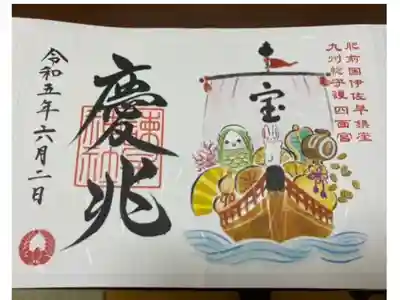 肥前国伊佐早鎮座
九州総守護 四面宮
宝
慶兆
令和五年六月二日